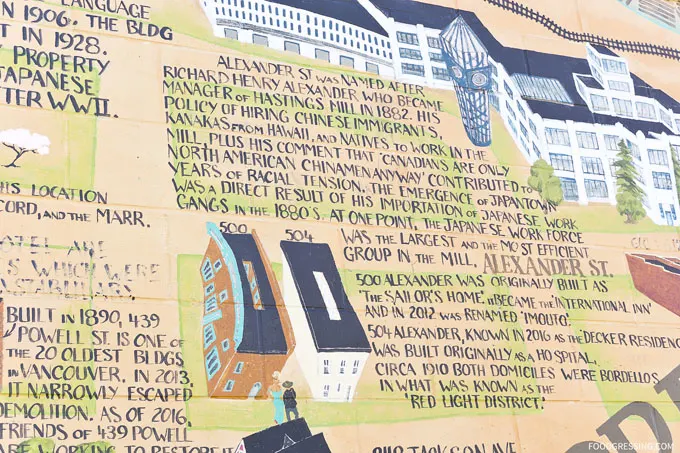 LANGUAGE
N 1906. THE BLDG
T IN 1928.
PROPERTY
JAPANESE
TER WWII.
HIS LOCATION
CORD, AND THE MARR.
ARE
WHICH WERE
BUILT IN 1890, 439
POWELL ST. IS ONE OF
THE 20 OLDEST BLDGS
IN VANCOUVER. IN 2013,
IT NARROWLY ESCAPED
DEMOLITION. AS OF 2016,
FRIENDS OF 439 POWELL
ARE WORKING TO RESTORE IT
ALEXANDER ST WAS NAMED AFTER
RICHARD HENRY ALEXANDER WHO BECAME
MANAGER OF HASTINGS MILL IN 1882. HIS
POLICY OF HIRING CHINESE IMMIGRANTS,
KANAKAS FROM HAWAII, AND NATIVES TO WORK IN THE
MILL PLUS HIS COMMENT THAT 'CANADIANS ARE ONLY
NORTH AMERICAN CHINAMEN ANYWAY' CONTRIBUTED TO
YEARS OF RACIAL TENSION. THE EMERGENCE OF JAPANTOWN
WAS A DIRECT RESULT OF HIS IMPORTATION OF JAPANESE WORK
GANGS IN THE 1880'S. AT ONE POINT, THE JAPANESE WORK FORCE
WAS THE LARGEST AND THE MOST EFFICIENT
GROUP IN THE MILL. ALEXANDER ST.
500 504
500 ALEXANDER WAS ORIGINALLY BUILT AS
'THE SAILOR'S HOME'. IT BECAME THE 'INTERNATIONAL INN'
AND IN 2012 WAS RENAMED 'IMOUTO'.
504 ALEXANDER, KNOWN IN 2016 AS THE 'DECKER RESIDENC
WAS BUILT ORIGINALLY AS A HOSPITAL.
CIRCA 1910 BOTH DOMICILES WERE BORDELLOS
IN WHAT WAS KNOWN AS THE
'RED LIGHT DISTRICT.'
JACKSON AVE
FOODGRESSING.COM